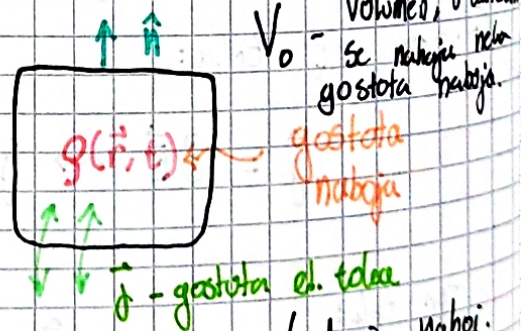 n⃗
V₀ - volumen,
se nahaja neka
gostota naboja.
ρ(r⃗, t)
gostota
naboja
j⃗ - gostota el. toka
naboj.